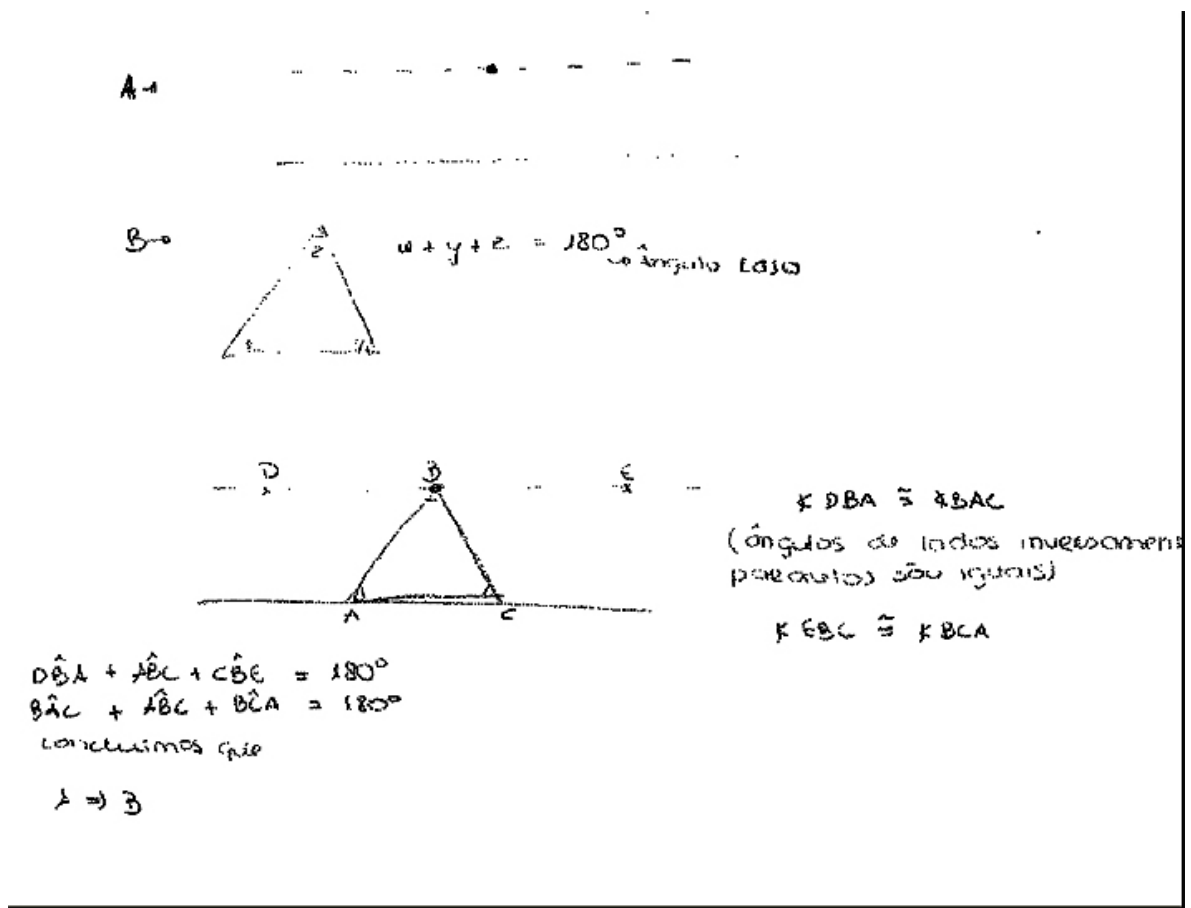 A→
B→
y
z
w + y + z = 180°
→ ângulo raso
D B E
A C
∢ DBA ≅ ∢BAC
(ângulos de lados inversamen
paralelos são iguais)
∢ EBC ≅ ∢ BCA
DB̂A + AB̂C + CB̂E = 180°
BÂC + AB̂C + BĈA = 180°
concluimos que
A ⇒ B